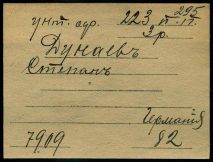 унт. одр. 223 295/VI-17.
3 р.
Дунаевъ
Степанъ
Германія
7909 82